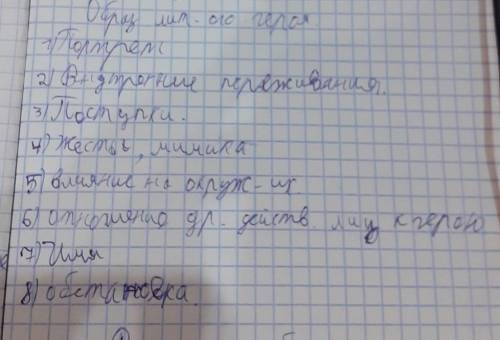 Образ лит-ого героя
1) Портрет
2) Внутренние переживания.
3) Поступки.
4) Жесты, мимика
5) влияние на окруж-их
6) отношение др. действ. лиц к герою
7) Имя
8) обстановка.